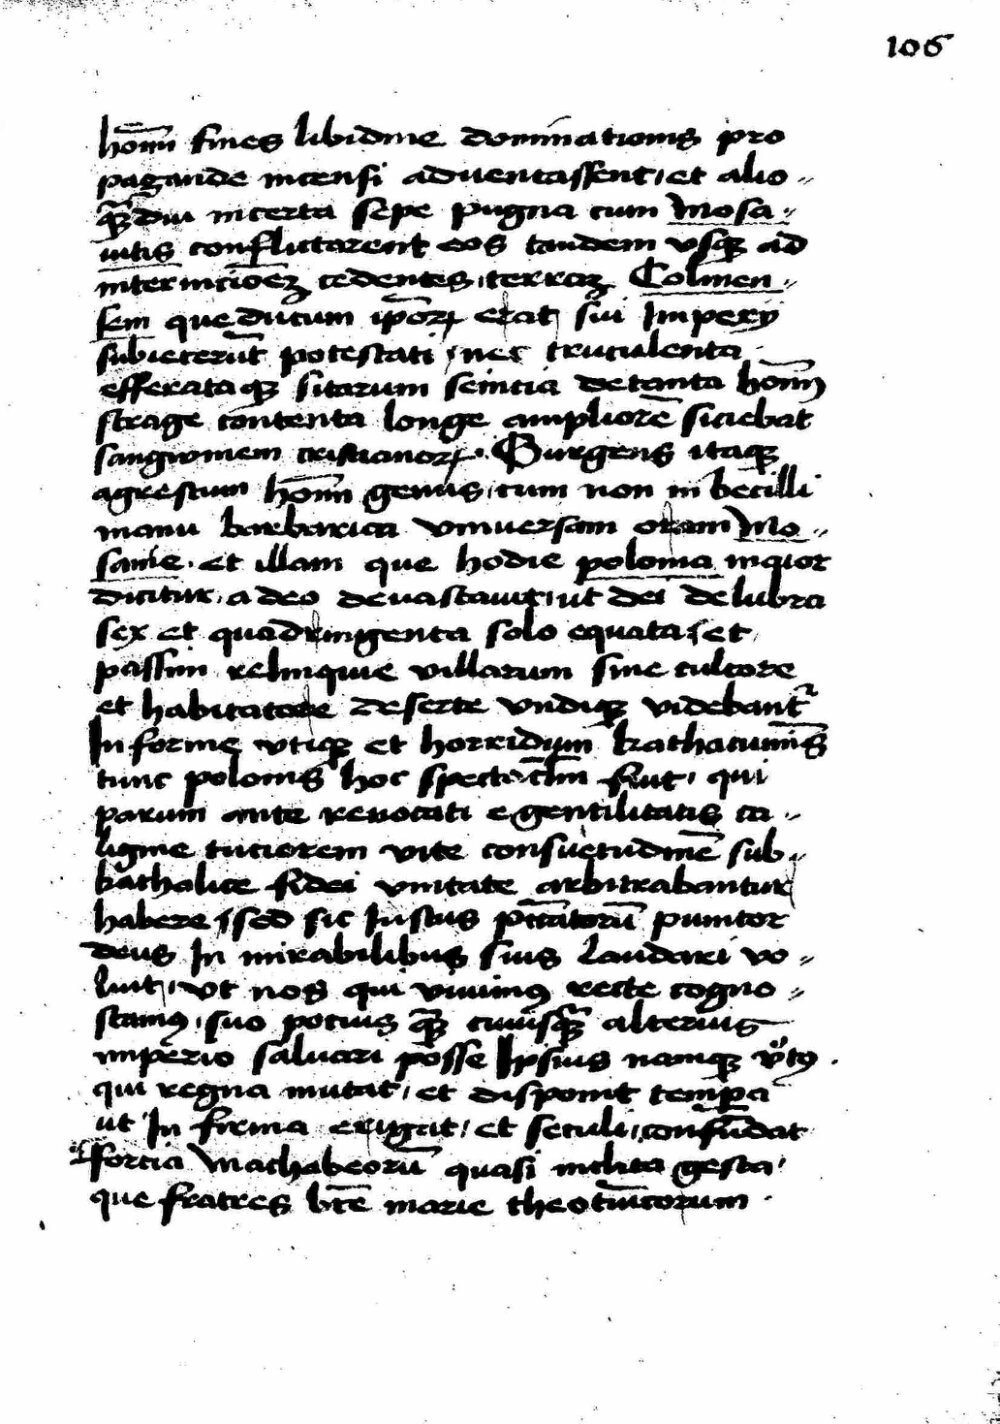 106
hom̄ fines libidine dominationis pro
pagande incensi aduentassent, et alio-
qꝫ diu incerta sepe pugna cum Mosa-
uitis conflictarent eos tandem vsqꝫ ad
internicōeꝫ cedentes, terraꝫ Colmen-
sem que ducum ip̄orꝝ erat sui Imperij
subiecerūt potestati, nec truculenta
efferataqꝫ sitarum seuicia de tanta hom̄
strage contenta longe ampliorē siciebat
sangwinem cristianorꝝ. Surgens itaqꝫ
agrestium hom̄ genus, cum non inbecilli
manu barbarica vniuersam oram Mo-
sauie. et illam que hodie polonia maior
dicitur, adeo deuastauit, ut dei delubra
sex et quadringenta solo equata, et
passim relinquie villarum sine cultore
et habitatore deserte vndiqꝫ videbant᷑
In forme vtiqꝫ et horridum kathacuminis
tunc polonis hoc spectac̄lm fuit, qui
parum ante reuocati e gentilitatis ca-
ligine tuciorem vite consuetudinē sub
katholice fidei vnitate arbitrabantur
habere, sed sic Iustus pc̄catorū punitor
deus In mirabilibus suis laudari vo-
luit, vt nos qui viuimꝰ recte cogno-
scamꝰ, suo pocius qꝫ cuiusqꝫ alterius
imperio saluari posse Ipsius namqꝫ v̊tꝰ.
qui regna mutat, et disponit tempora
ut In firma erigat, et seculi confundat
fforcia Machabeorū quasi inclita gesta,
que fratres bt̄e marie theotunicorum.